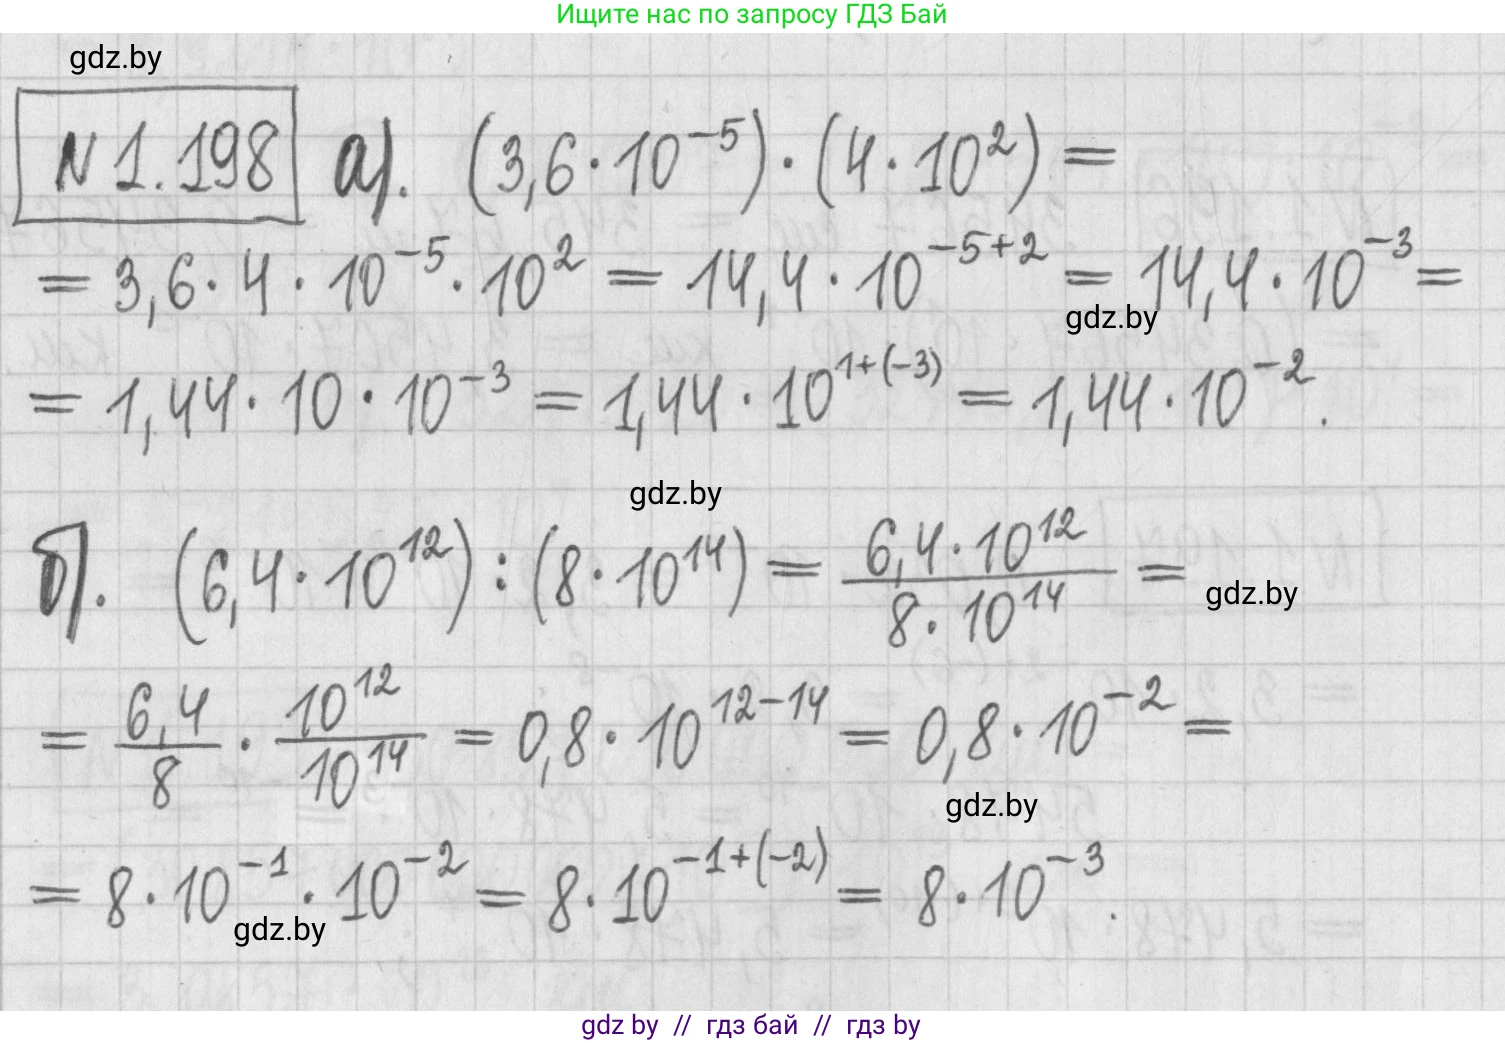 Ищите нас по запросу ГДЗ Бай
gdz.by
N 1.198 а). (3,6 · 10⁻⁵) · (4 · 10²) =
= 3,6 · 4 · 10⁻⁵ · 10² = 14,4 · 10⁻⁵⁺² = 14,4 · 10⁻³ =
gdz.by
= 1,44 · 10 · 10⁻³ = 1,44 · 10¹⁺⁽⁻³⁾ = 1,44 · 10⁻².
gdz.by
б). (6,4 · 10¹²) : (8 · 10¹⁴) = (6,4 · 10¹²)/(8 · 10¹⁴) =
gdz.by
= 6,4/8 · 10¹²/10¹⁴ = 0,8 · 10¹²⁻¹⁴ = 0,8 · 10⁻² =
gdz.by
= 8 · 10⁻¹ · 10⁻² = 8 · 10⁻¹⁺⁽⁻²⁾ = 8 · 10⁻³.
gdz.by
gdz by // гдз бай // гдз by